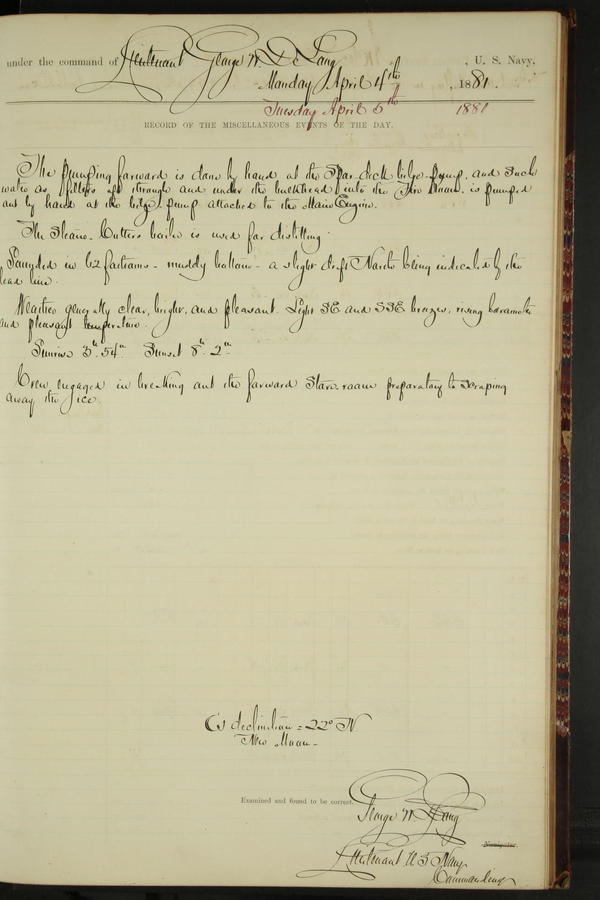 under the command of Lieutenant George W. De Long, U. S. Navy,
Monday April 4th, 1881.
Tuesday April 5th 1881
RECORD OF THE MISCELLANEOUS EVENTS OF THE DAY.
The pumping forward is done by hand at the Spar deck bilge pump, and such
water as filters aft through and under the bulkhead into the Fire Room, is pumped
out by hand at the bilge pump attached to the Main Engine.
The Steam-Cutters boiler is used for distilling.
Sounded in 42 fathoms - muddy bottom - a slight drift North being indicated by the
lead line.
Weather generally clear, bright, and pleasant. Light SE and SSE breezes, rising barometer
and pleasant temperature.
Sunrise 3h. 54m Sunset 8h. 2m
Crew engaged in breaking out the forward Store-room preparatory to scraping
away the ice.
('s declination = 22° N
New Moon -
Examined and found to be correct.
George W. De Long
Navigator.
Lieutenant U S Navy
Commanding